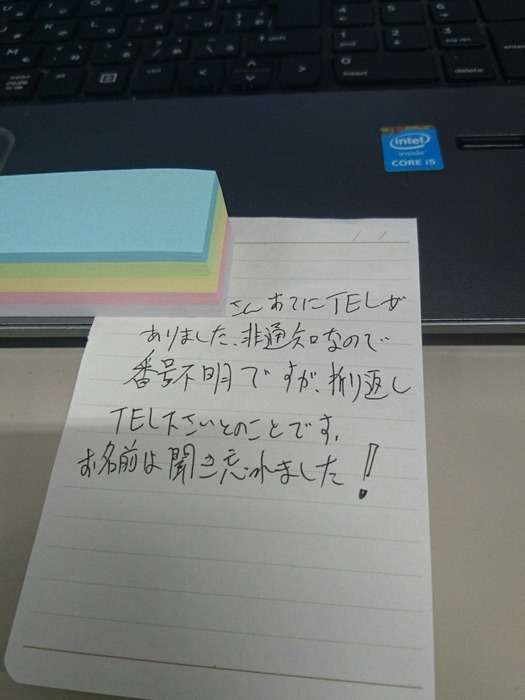 intel
inside
CORE i5
delete
さん あてにTELが
ありました、非通知なので
番号不明ですが、折り返し
TEL下さいとのことです。
お名前は聞き忘れました!